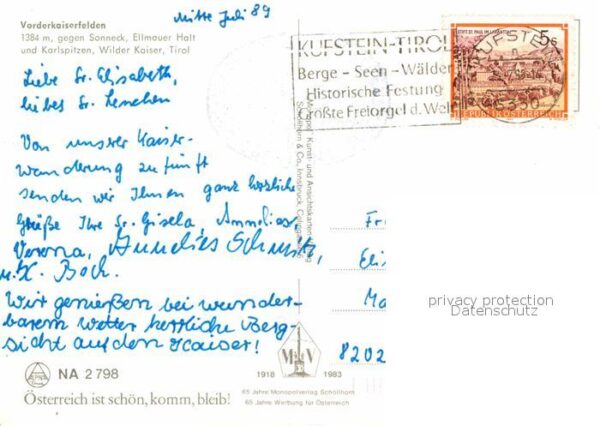 Mitte Juli 89
Vorderkaiserfelden
1384 m, gegen Sonneck, Ellmauer Halt
und Karlspitzen, Wilder Kaiser, Tirol
Liebe Sr. Elisabeth,
liebes Sr. Lenchen
Von unserer Kaiser-
wanderung zu fünft
senden wir Ihnen ganz herzliche
Grüße Ihre Sr. Gisela, Annelies
Verona, Annelies Schmitz,
u. K. Bock.
Wir genießen bei wunder-
barem Wetter herrliche Berg-
sicht auf den Kaiser!
NA 2798
Österreich ist schön, komm, bleib!
KUFSTEIN-TIROL
Berge - Seen - Wälder
Historische Festung
Größte Freiorgel d. Welt
KUFSTEIN
6330
STIFT ST. PAUL IM LAVANTTAL
5 S
REPUBLIK ÖSTERREICH
Monopol Kunst- und Ansichtskartenverlag
Schöllhorn & Co., Innsbruck,
Fr
Eli
Ma
8202
privacy protection
Datenschutz
M V
1918 1983
65 Jahre Monopolverlag Schöllhorn
65 Jahre Werbung für Österreich